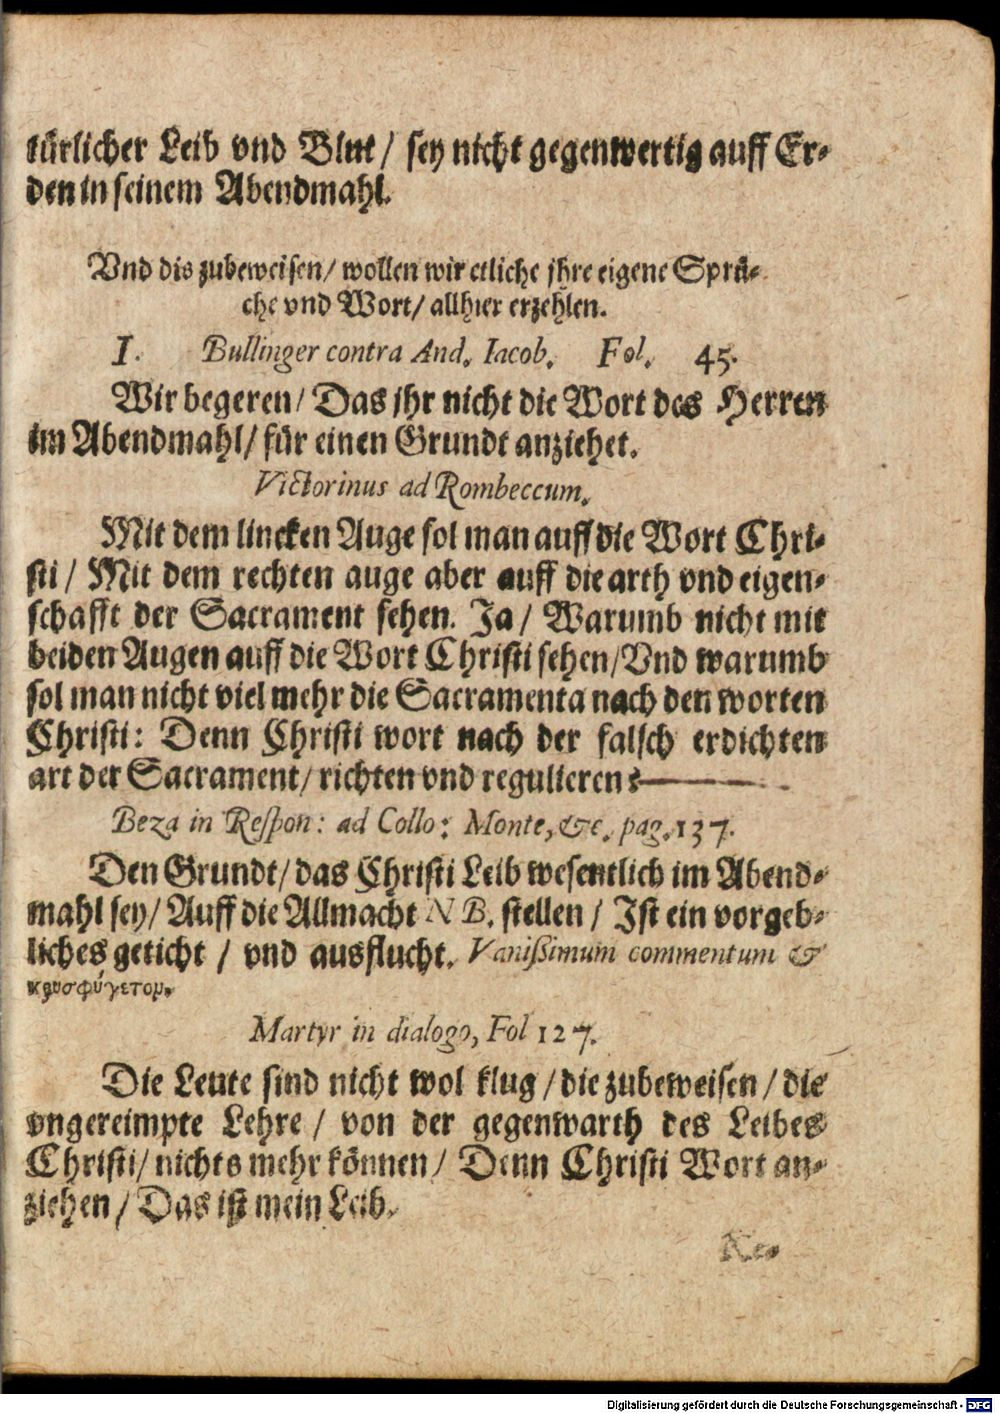 türlicher Leib vnd Blut / sey nicht gegenwertig auff Er-
den in seinem Abendmahl.
Vnd dis zubeweisen / wollen wir etliche jhre eigene Sprü-
che vnd Wort / allhier erzehlen.
I. Bullinger contra And. Iacob. Fol. 45.
Wir begeren / Das jhr nicht die Wort des Herren
im Abendmahl / für einen Grundt anziehet.
Victorinus ad Rombeccum.
Mit dem lincken Auge sol man auff die Wort Chri-
sti / Mit dem rechten auge aber auff die arth vnd eigen-
schafft der Sacrament sehen. Ja / Warumb nicht mit
beiden Augen auff die Wort Christi sehen / Vnd warumb
sol man nicht viel mehr die Sacramenta nach den worten
Christi: Denn Christi wort nach der falsch erdichten
art der Sacrament / richten vnd regulieren?
Beza in Respon: ad Collo: Monte, &c. pag. 137.
Den Grundt / das Christi Leib wesentlich im Abend-
mahl sey / Auff die Allmacht N B. stellen / Ist ein vorgeb-
liches geticht / vnd ausflucht. Vanißimum commentum &
κρυσφύγετομ.
Martyr in dialogo, Fol 127.
Die Leute sind nicht wol klug / die zubeweisen / die
vngereimpte Lehre / von der gegenwarth des Leibes
Christi / nichts mehr können / Denn Christi Wort an-
ziehen / Das ist mein Leib.
Ke-
Digitalisierung gefördert durch die Deutsche Forschungsgemeinschaft - DFG